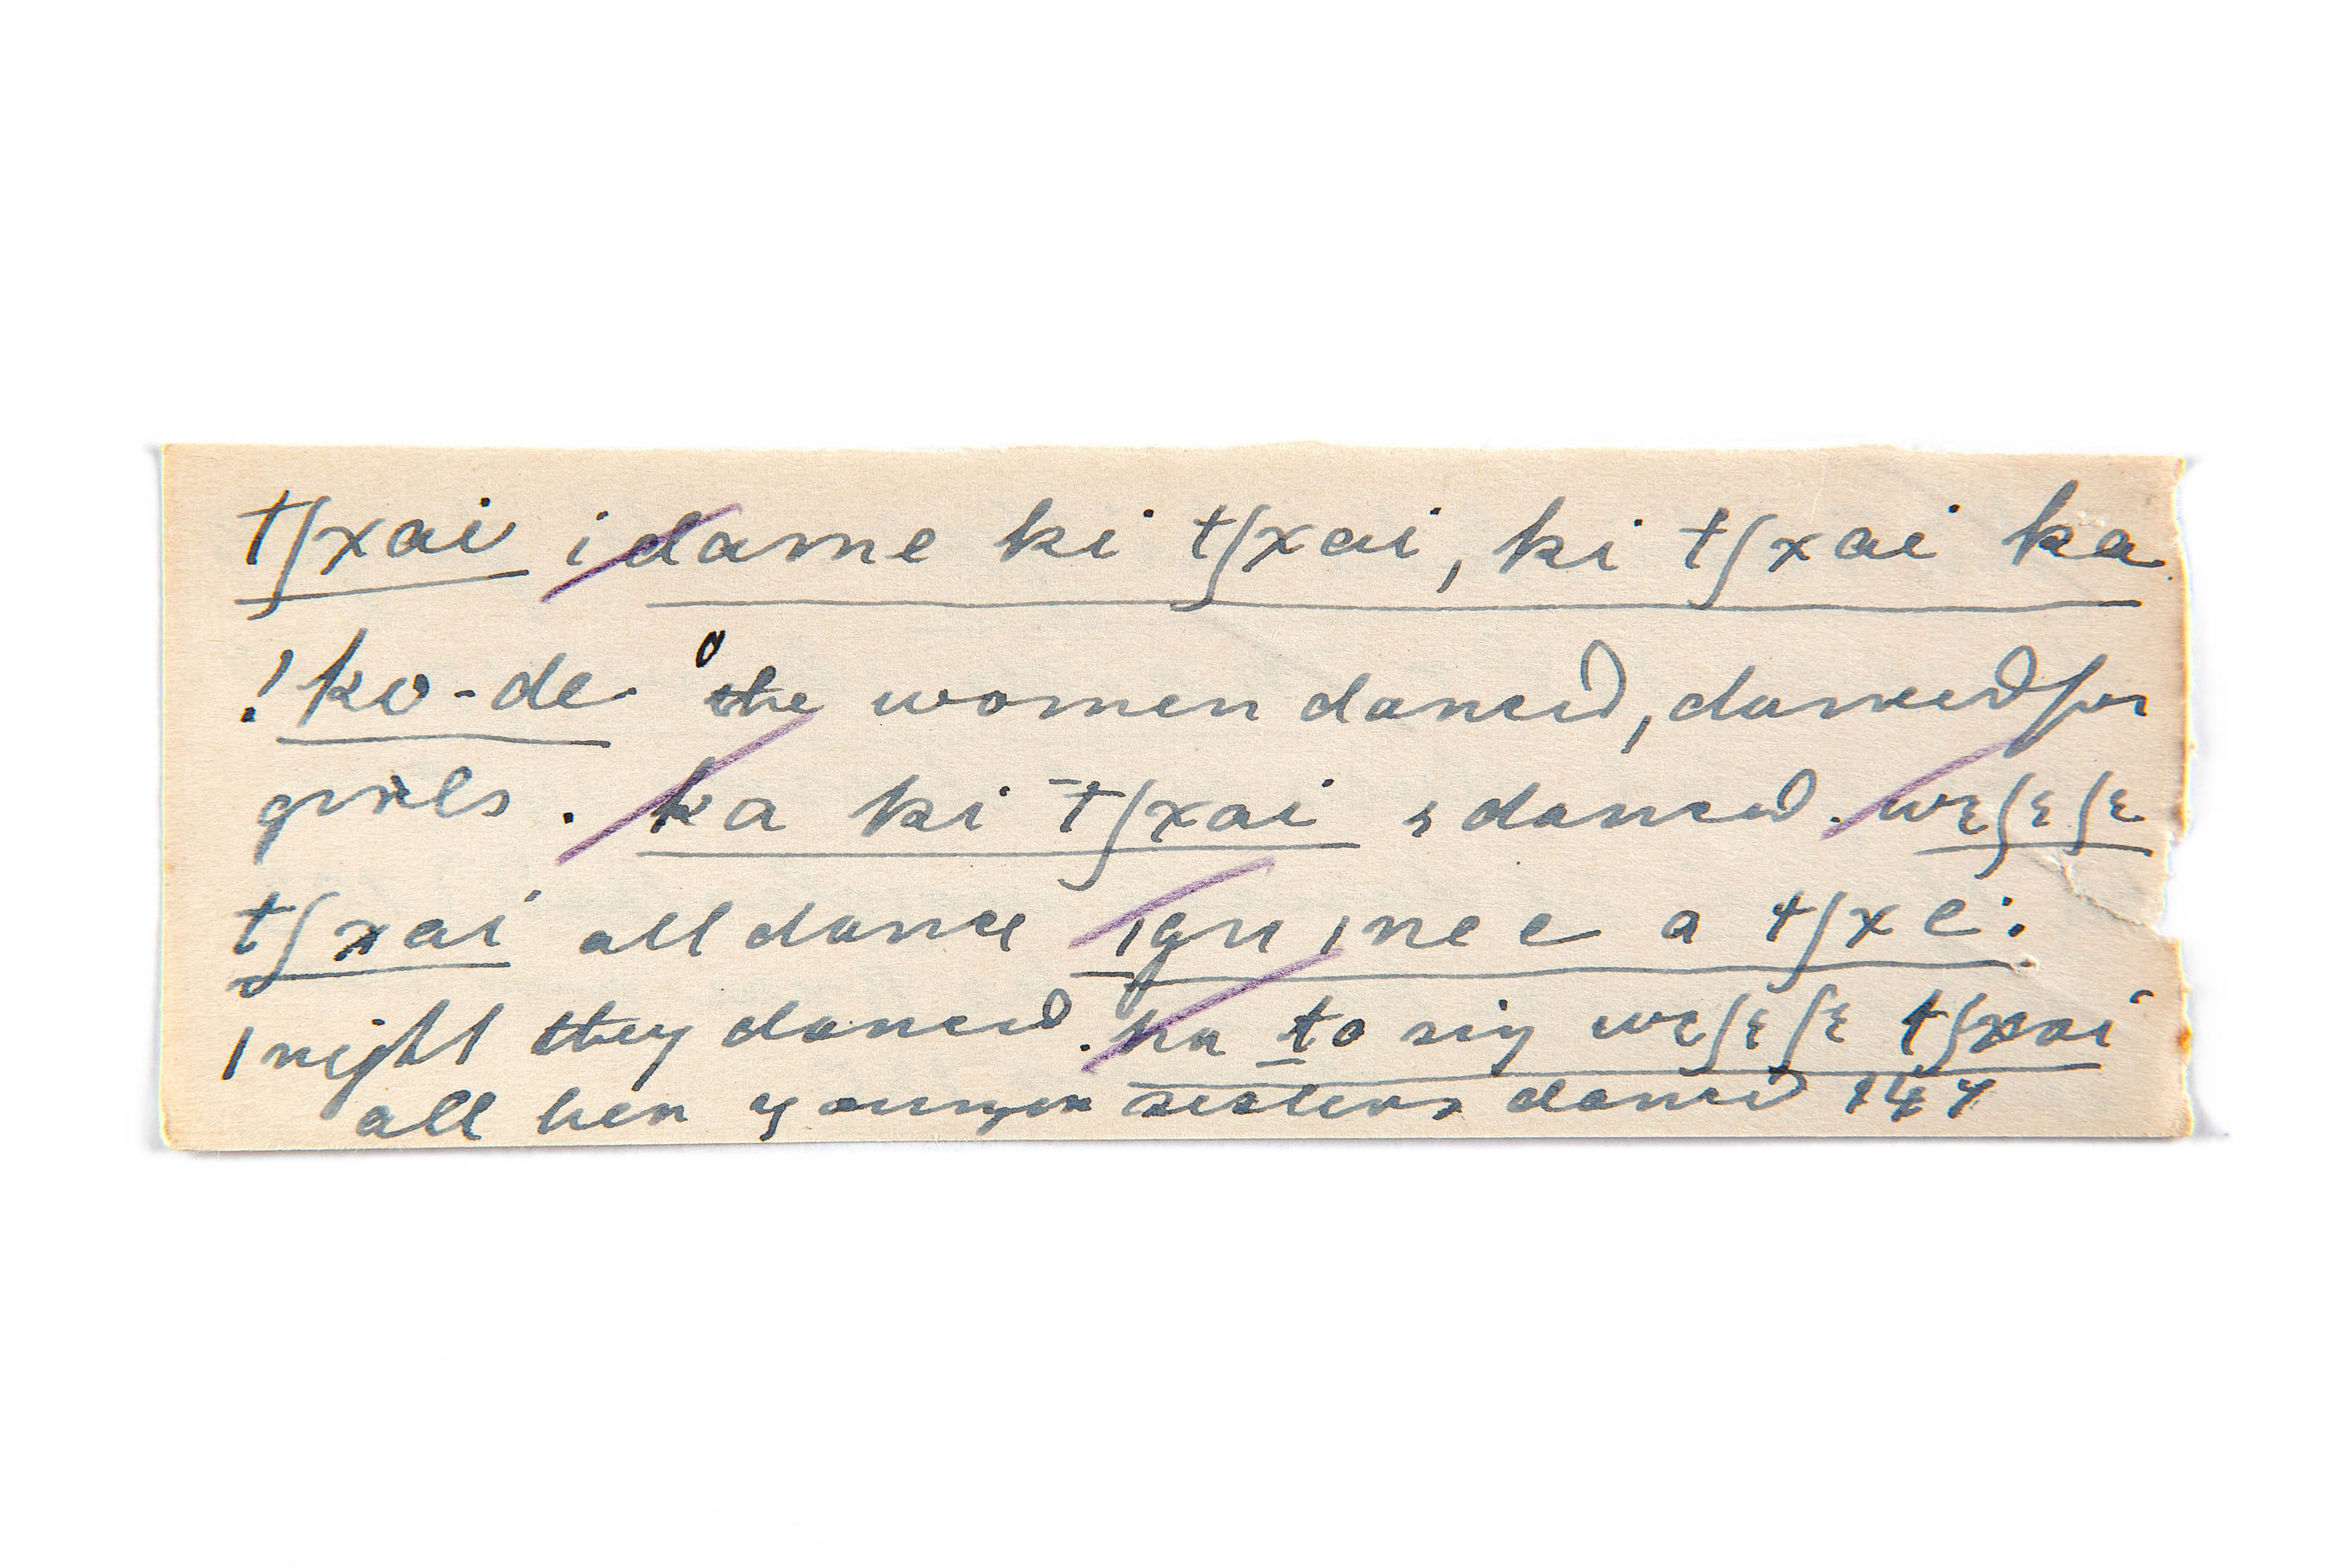 tʃxai idame ki tʃxai, ki tʃxai ka
!ko-de the women danced, danced for
girls. ka ki tʃxai s danced. wɛʃɛʃɛ
tʃxai all dance ıgu ınee a tʃxe:
1 night they danced. ha to siŋ wɛʃɛʃɛ tʃxai
all her younger sisters danced 147